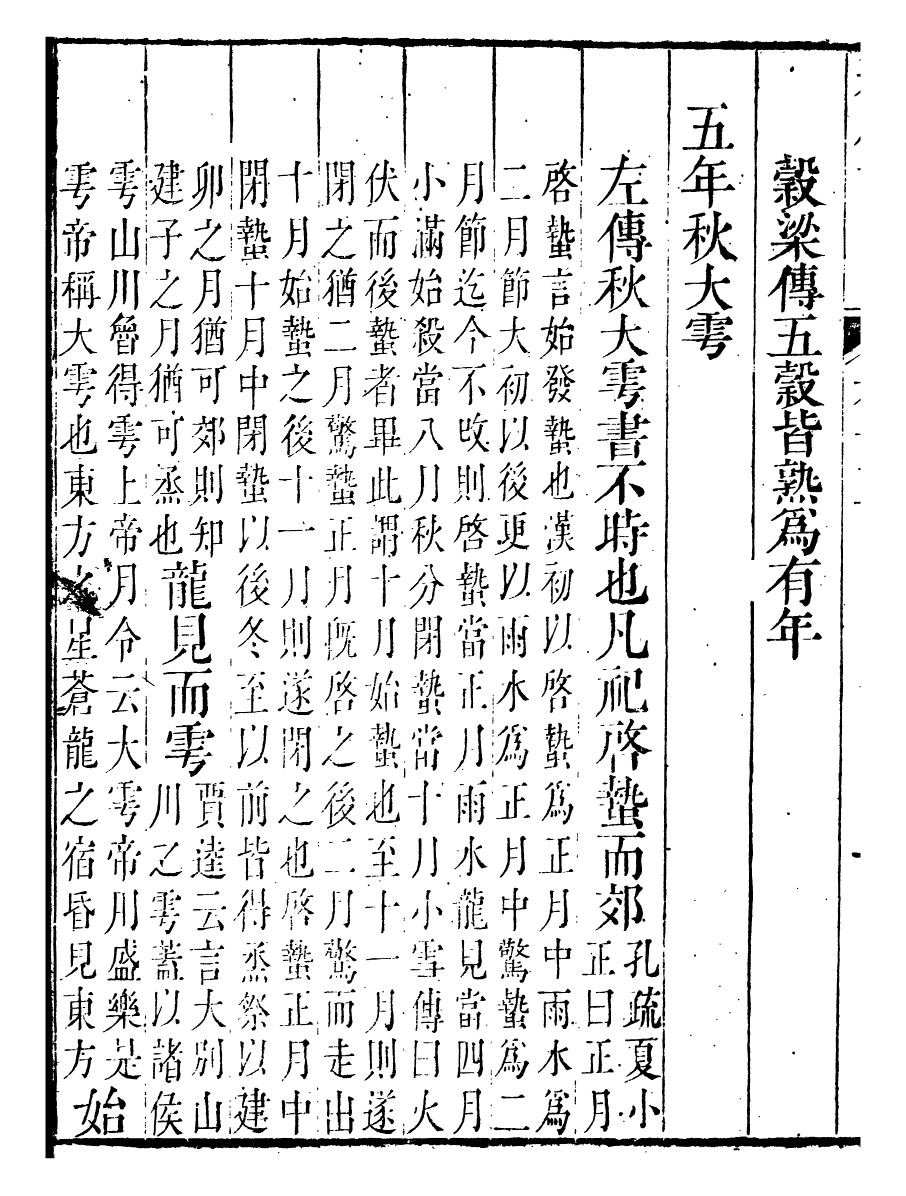 穀梁傳五穀皆熟爲有年
五年秋大雩
左傳秋大雩書不時也凡祀啓蟄而郊孔疏夏小
正曰正月
啓蟄言始發蟄也漢初以啓蟄爲正月中雨水爲
二月節大初以後更以雨水爲正月中驚蟄爲二
月節迄今不改則啓蟄當正月雨水龍見當四月
小滿始殺當八月秋分閉蟄當十月小雪傳曰火
伏而後蟄者畢此謂十月始蟄也至十一月則遂
閉之猶二月驚蟄正月旣啓之後二月驚而走出
十月始蟄之後十一月則遂閉之也啓蟄正月中
閉蟄十月中閉蟄以後冬至以前皆得烝祭以建
卯之月猶可郊則知
建子之月猶可烝也
龍見而雩賈逵云言大別山
川之雩蓋以諸侯
雩山川魯得雩上帝月令云大雩帝用盛樂是
雩帝稱大雩也東方之星蒼龍之宿昏見東方
始